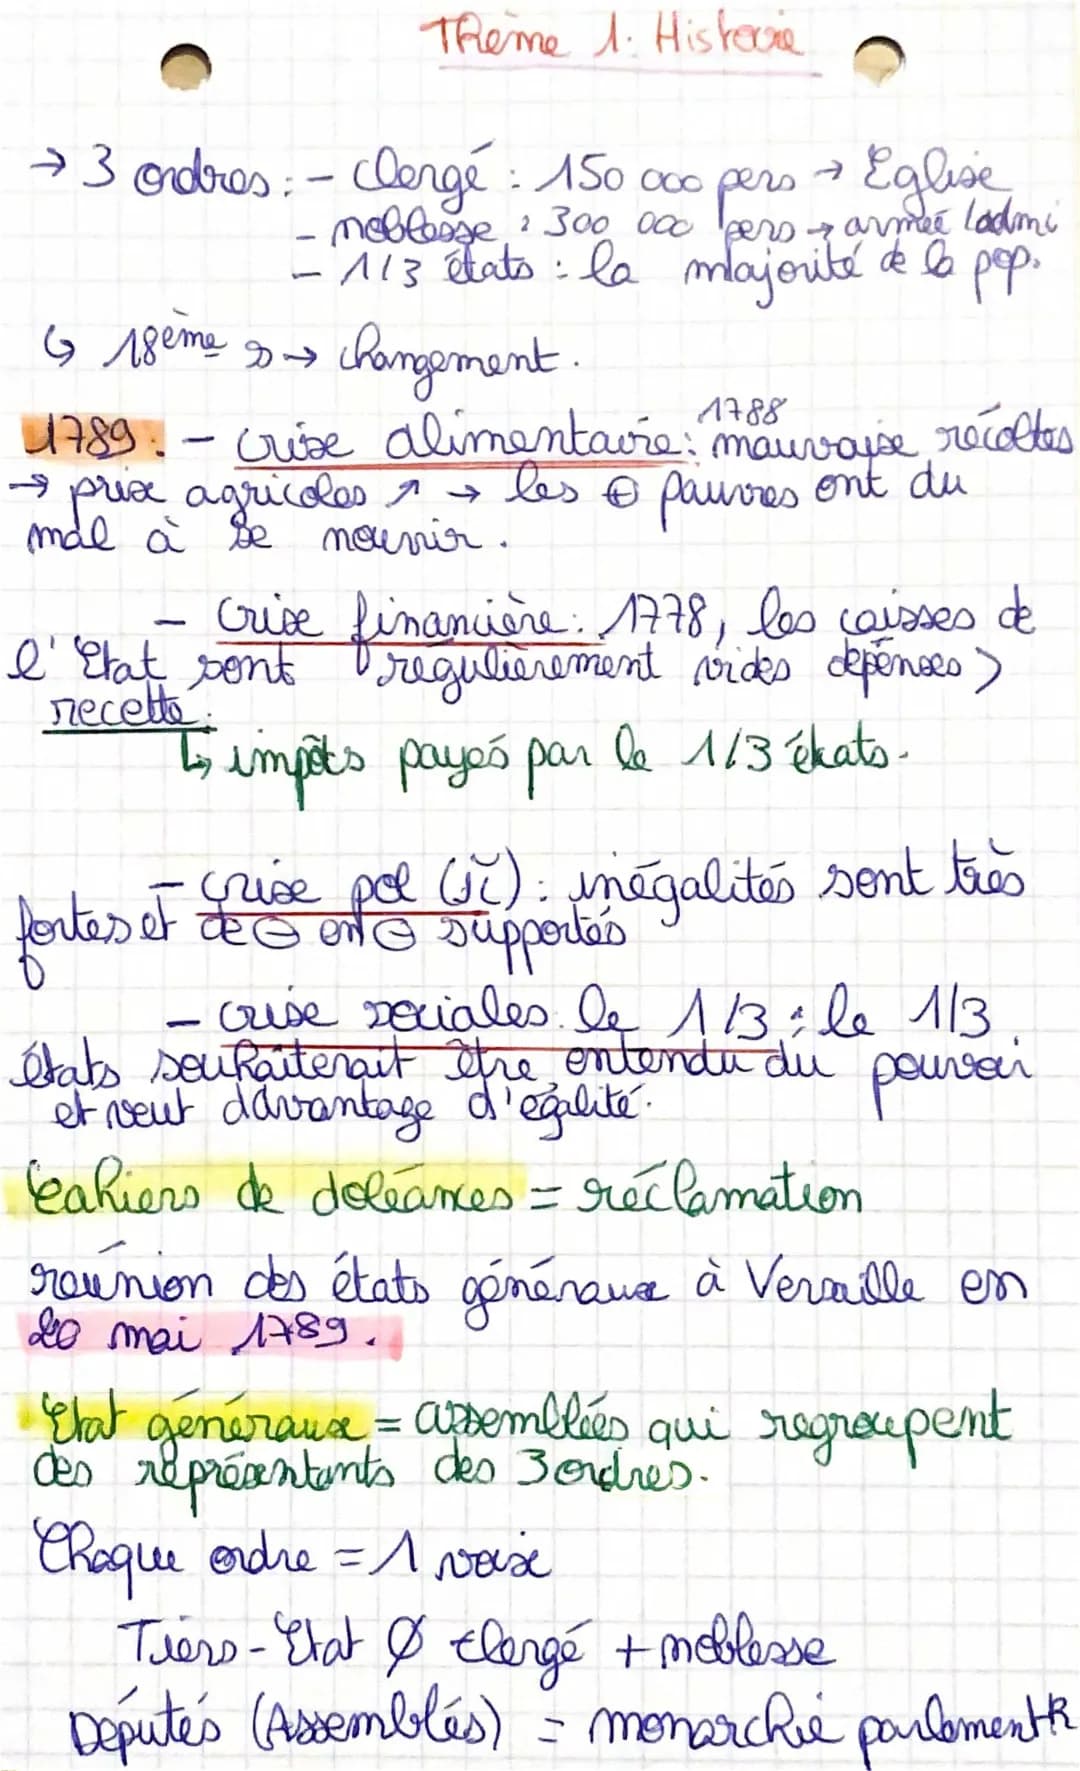 Thème 1: Histoire
→ 3 ordres : - Clergé : 150 000 pers → Eglise
- noblesse : 300 000 pers → armée /admi
- 1/3 états : la majorité de la pop.
↳ 18ème s → changement.
1789. - crise alimentaire : 1788 mauvaise récoltes
→ prix agricoles ↗ → les ⊕ pauvres ont du
mal à se nourrir.
- Crise financière : 1778, les caisses de
l'Etat sont régulièrement vides dépenses >
recette.
↳ impôts payés par le 1/3 états.
- crise pol (ji) : inégalités sont très
fortes et de ⊖ en ⊖ supportés
- crise sociales. le 1/3 : le 1/3
états souhaiterait être entendu du pouvoir
et veut davantage d'égalité.
Cahiers de doléances = réclamation
reúnion des états généraux à Versaille en
20 mai 1789.
Etat généraux = assemblées qui regroupent
des représentants des 3 ordres.
Chaque ordre = 1 voix
Tiers-Etat Ø clergé + noblesse
Députés (Assemblés) = monarchie parlement